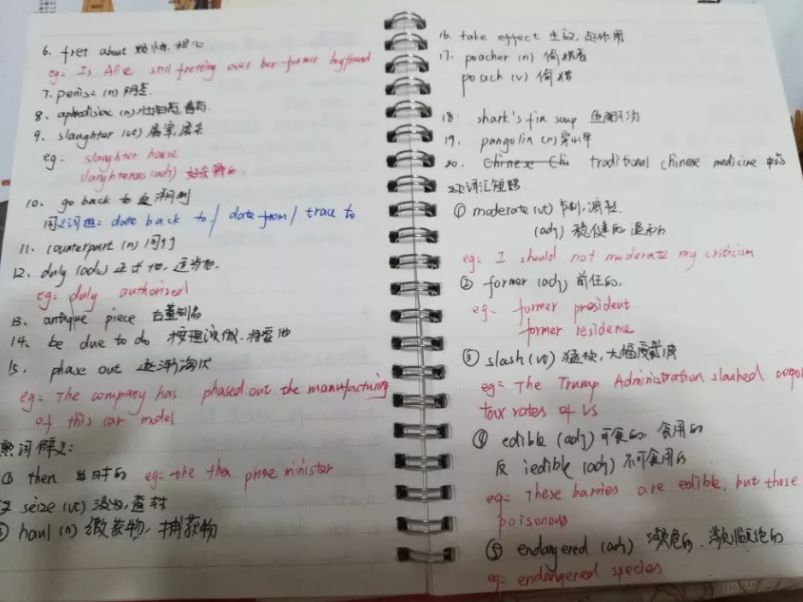 6. fret about 烦恼, 担心
eg: Is Alice still fretting over her former boyfriend
7. penis: (n) 阴茎
8. aphrodisiac (n)
9. slaughter (vt) 屠宰, 屠杀
eg: slaughter house
slaughterous (adj)
10. go back to 追溯到
同义词组: date back to / date from / trace to
11. counterpart (n) 同行
12. duly (adv) 正式地, 适当地.
eg: duly authorized
13. antique piece 古董制品
14. be due to do 按理该做, 将要做
15. phase out 逐渐淘汰
eg: The company has phased out the manufacturing
of this car model
熟词僻义:
① then 当时的 eg: the then prime minister
② seize (vt) 没收, 查封
③ haul (n) 缴获物, 捕获物
16. take effect 生效, 起作用
17. poacher (n) 偷猎者
poach (v) 偷猎
18. shark's fin soup 鱼翅汤
19. pangolin (n) 穿山甲
20. traditional chinese medicine 中药
词汇短语
① moderate (vt) 节制, 减轻
(adj) 稳健的 温和的
eg: I should not moderate my criticism
② former (adj) 前任的.
eg: former president
former residence
③ slash (vt) 猛砍, 大幅度裁减
eg: The Trump Administration slashed
tax rates of US
④ edible (adj) 可食的, 食用的
反 iedible (adj) 不可食用的
eg: These barries are edible, but those
poisonous
⑤ endangered (adj) 濒危的, 濒临灭绝的
eg: endangered species